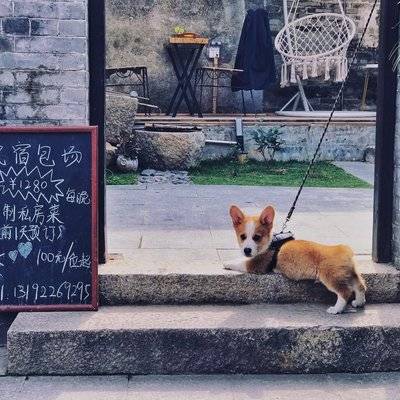 民宿包场
1280/每晚
制私房菜
前1天预订
100元/位起
1.13192269295